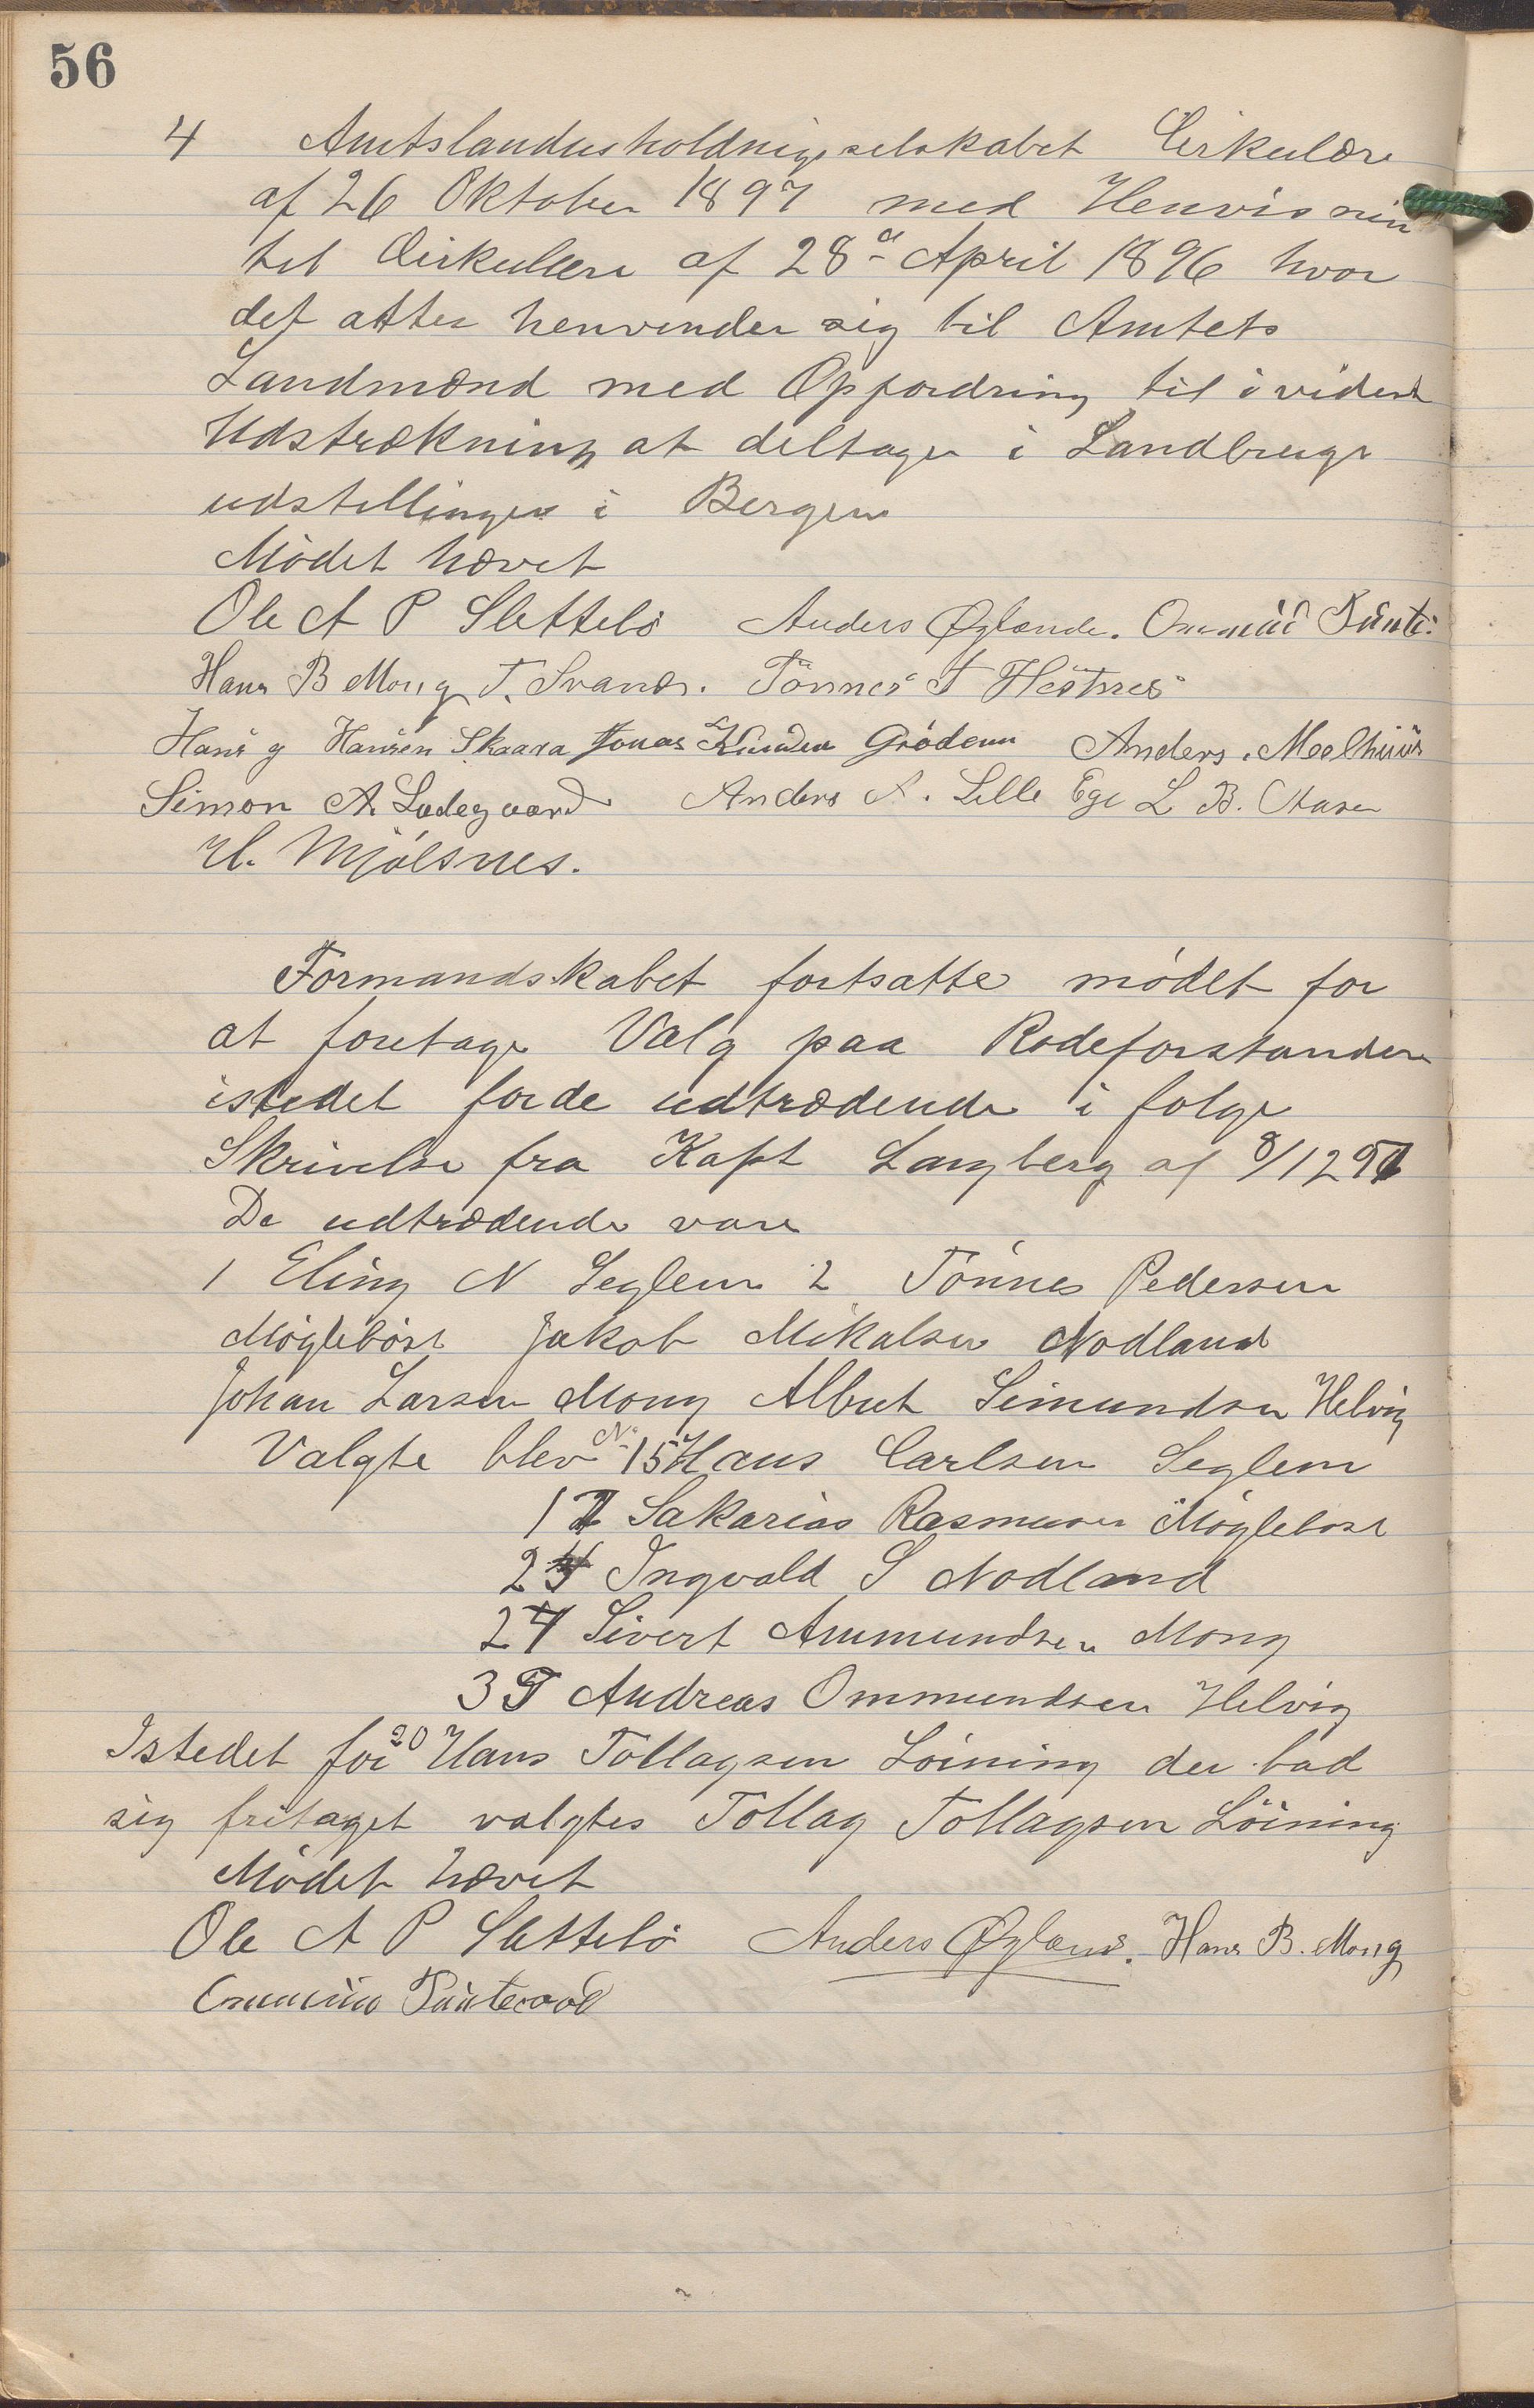 56
4 Amtslandhusholdnigsselskabet Cirkulære
af 26 Oktober 1897 med Henvisnin
til Cirkulære af 28de April 1896 hvor
det atter henvender sig til Amtets
Landmænd med Opfordring til i videst
Udstrækning at deltage i Landbrugs
udstillingen i Bergen
Mödet hævet
Ole A P Slettebö Anders Øglænde.
Hans B Mong T. Svanes. Tönnes T Hestnes
Hans g Hansen Skaara Jonas Knudsen Grödem Anders. Mælhüüs
Simon A. Ladegaard Anders A. Lille Ege L B. Aase
H. Mjölsnes.
Formandskabet fortsatte mödet for
at foretage Valg paa Rodeforstandere
istedet forde udtrædende i folge
Skrivelse fra Kapt Langberg af 8/12 97
De udtrædende vare
1 Eling N Seglem 2 Tönnes Pedersen
Mögleböst Jakob Mikalsen Nodland
Johan Larsen Mong Albert Simundsen Helvig
Valgte blev N. 15 Hans Carlsen Seglem
17 Sakarias Rasmusen Möglebost
24 Ingvald S Nodland
27 Sivert Ammundsen Mong
35 Andreas Ommundsen Helvig
Istedet for 20 Hans Tollagsen Löining der bad
sig fritaget valgtes Tollag Tollagsen Löining
Mödet hævet
Ole A P Slettebö Anders Øglænd. Hans B. Mong